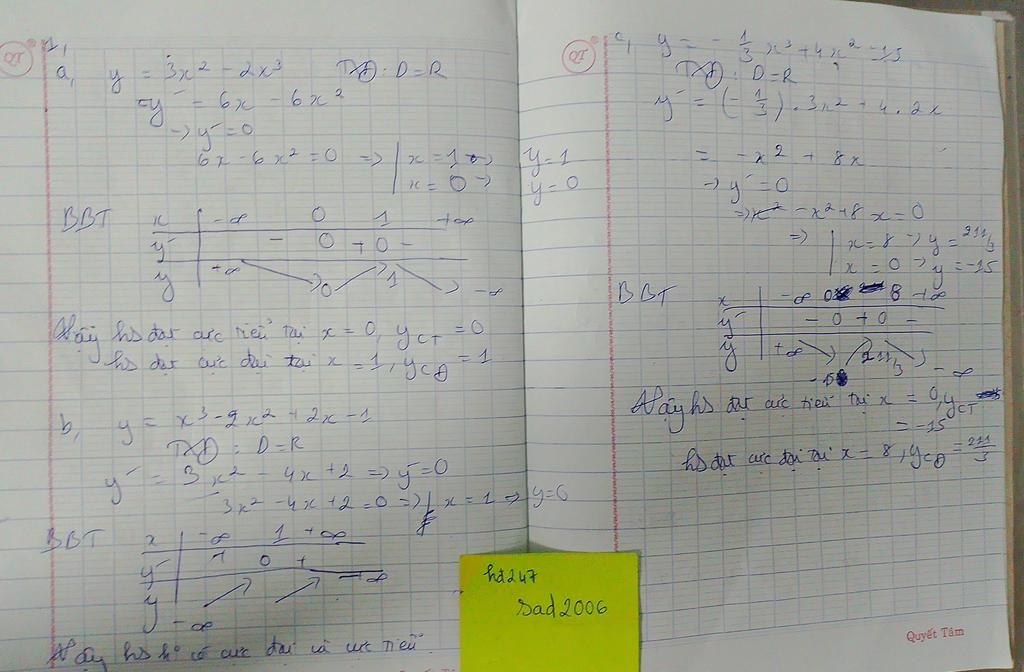 1,
a, y = 3x² - 2x³ TXĐ: D=R
=y' = 6x - 6x²
→ y'=0
6x-6x²=0 => | x=1 → y=1
| x=0 → y=0
BBT x | -∞ 0 1 +∞
y' | - 0 + 0 -
y | +∞ 0 1 -∞
Vậy hs đạt cực tiểu tại x=0, yCT=0
hs đạt cực đại tại x=1, yCĐ=1
b, y = x³-2x²+2x-1
TXĐ: D=R
y' = 3x² - 4x+2 => y'=0
3x²-4x+2=0 => | x=1 => y=6
BBT x | -∞ 1 +∞
y' | + 0 +
y | -∞ +∞
Vậy hs k có cực đại và cực tiểu.
c, y = -1/3 x³+4x²-15
TXĐ: D=R
y' = (-1/3).3x²+4.2x
= -x² + 8x
→ y'=0
=> -x²+8x=0
=> | x=8 → y=211/3
| x=0 → y=-15
BBT x | -∞ 0 8 +∞
y' | - 0 + 0 -
y | +∞ 211/3 -∞
Vậy hs đạt cực tiểu tại x=0, yCT
= -15
hs đạt cực đại tại x=8, yCĐ=211/3
hd247
sad2006
Quyết Tâm